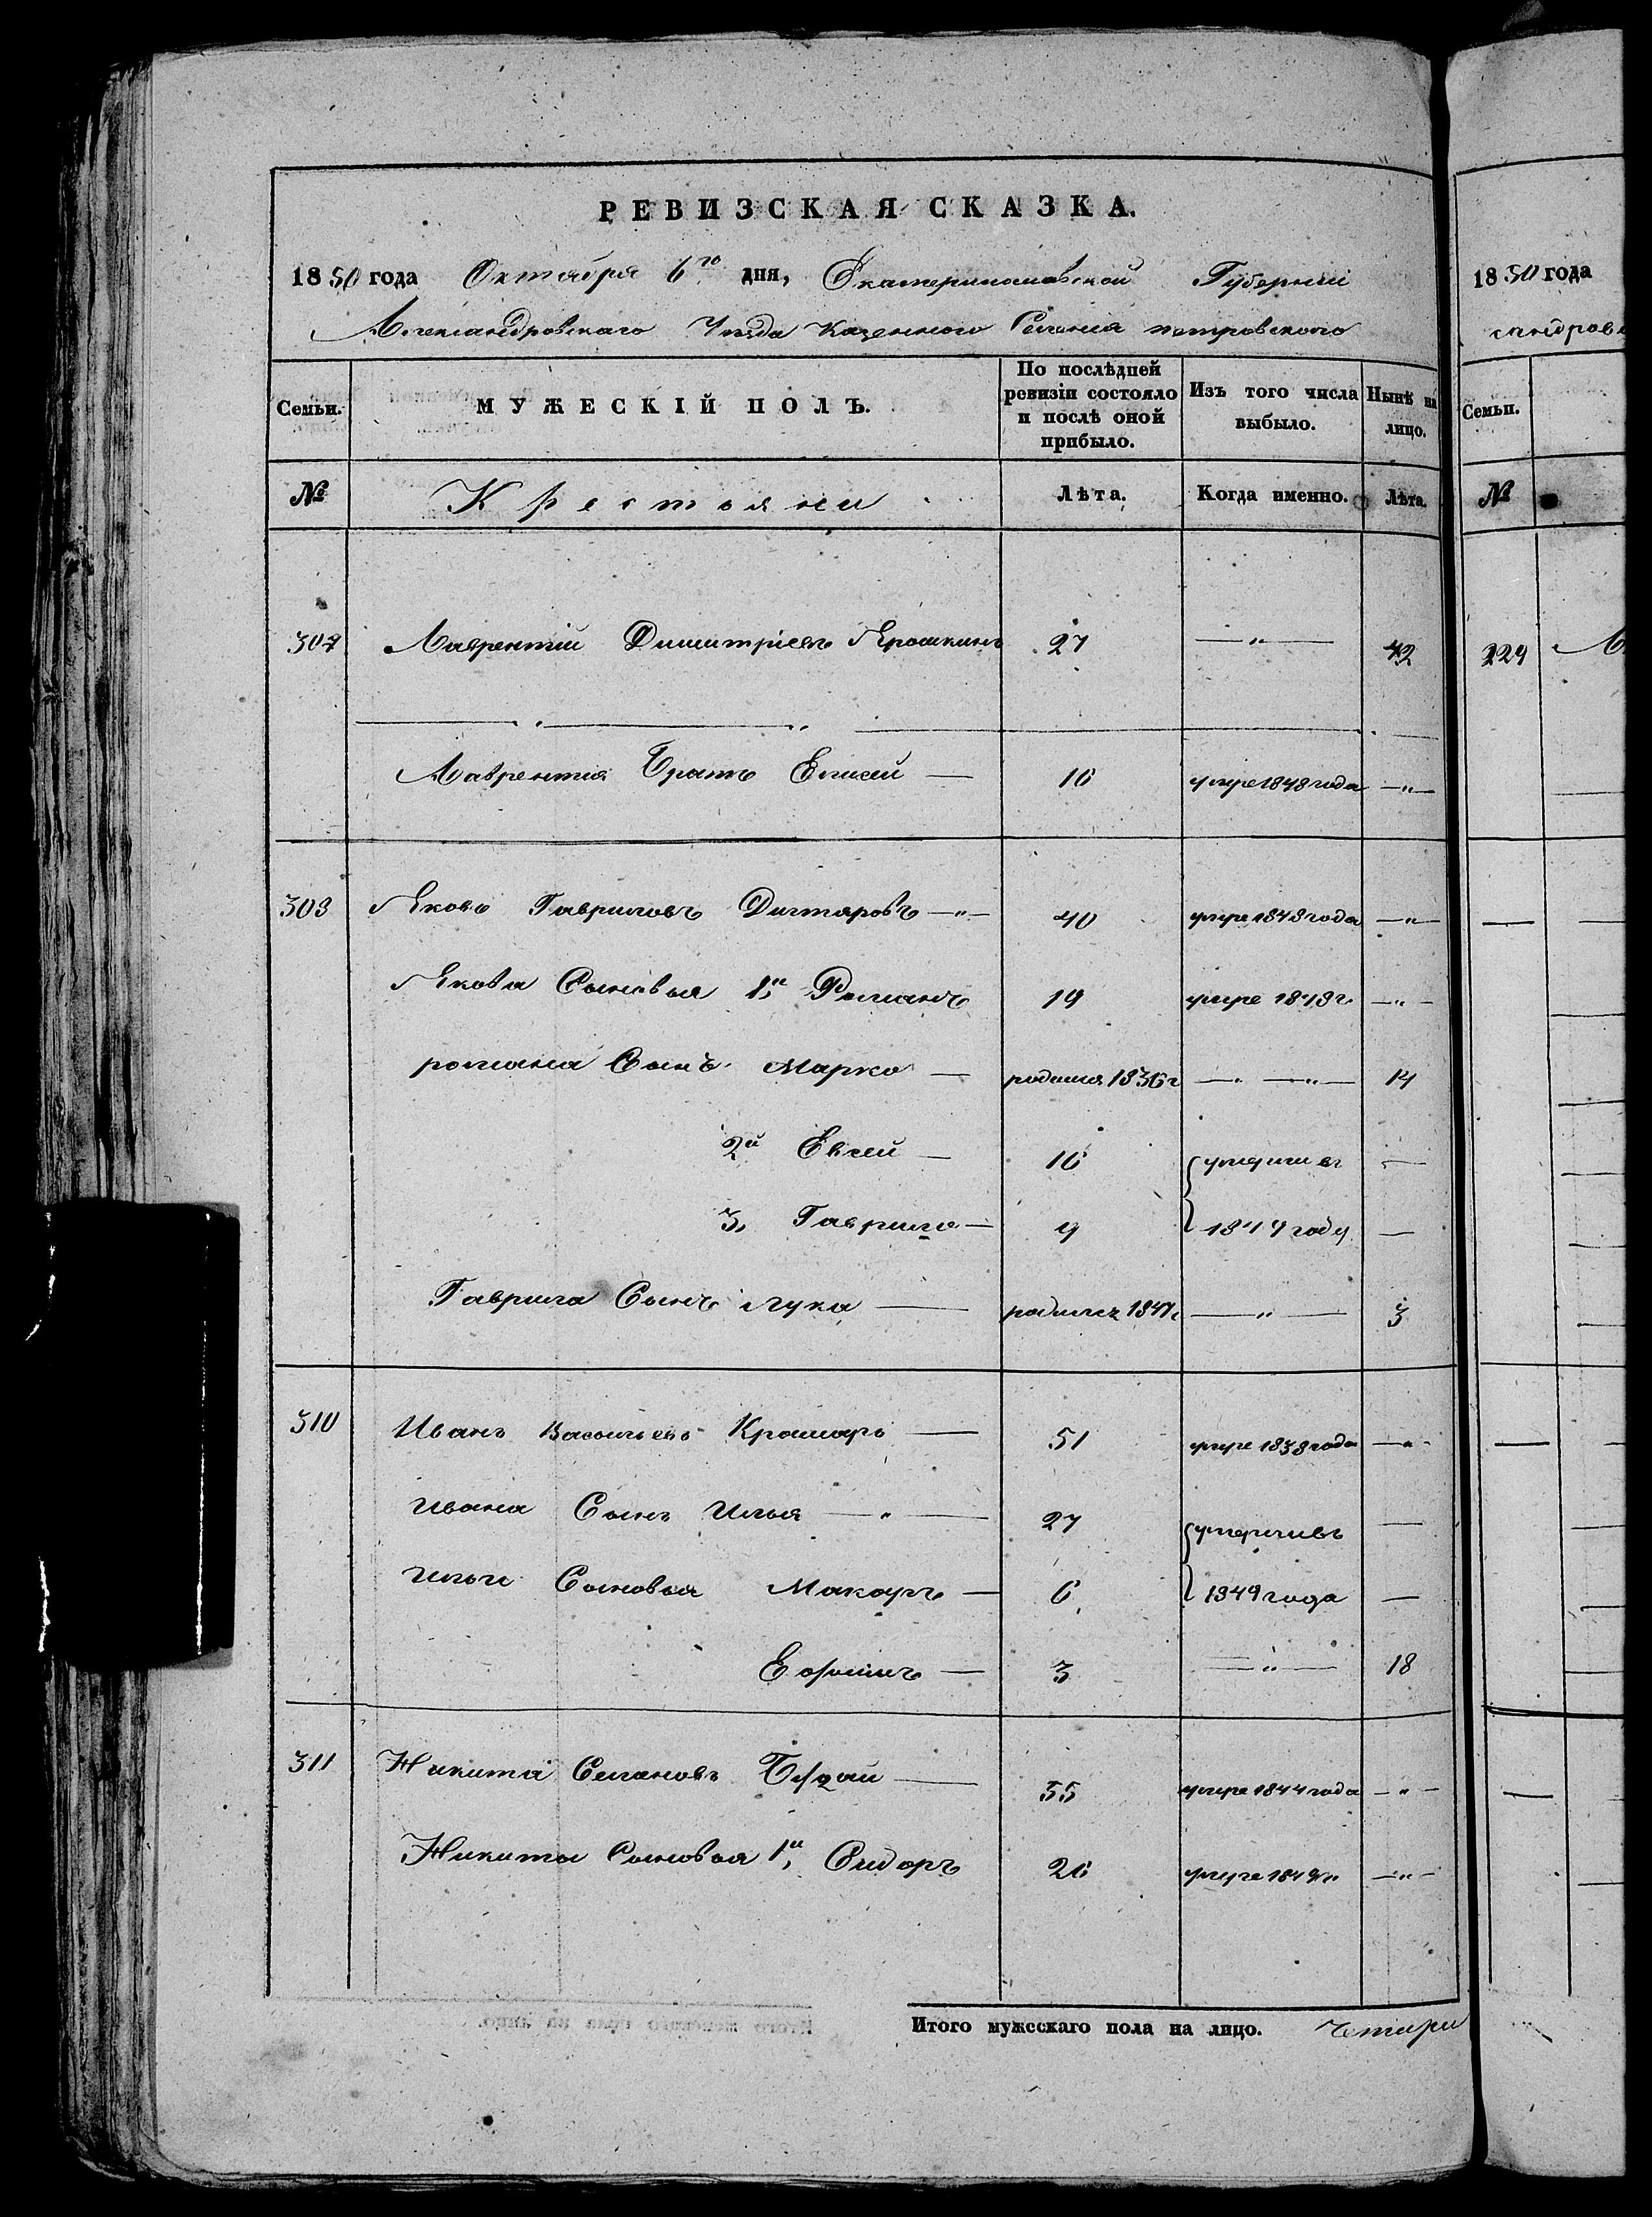 РЕВИЗСКАЯ СКАЗКА.
1850 года Октября 6го дня, Екатеринославской Губерніи
Александровскаго Уезда Казенного Селенія петровского
Семьи. МУЖЕСКІЙ ПОЛЪ. По послѣдней ревизіи состояло и послѣ оной прибыло. Изъ того числа выбыло. Нынѣ на лицо.
№ Крестьяни Лѣта. Когда именно. Лѣта.
Лаврентій Димитріевъ Ярошкинъ 27 —„— 42
Лаврентия Братъ Елисей — 16 умре 1848 года —„—
Яковъ Гавриловъ Дигтяровъ —„— 40 умре 1848 года —„—
Якова Сыновья 1й Романъ 19 умре —„—
романа Сынъ Марко — родился 1836г —„— —„— 14
2й Евсей — 16 умерли въ —
3, Гаврило — 9 году —
Гаврила Сынъ лука — родился 1847г —„— 3
310 Иванъ Васильевъ Крамаръ — 51 умре 1838 года —„—
Ивана Сынъ Илья —„— 27 умерли въ —
Ильи Сыновья Макаръ — 6 1849 года —
Ефимъ — 3 —„— 18
311 Никита Семеновъ 55 умре 1844 года —„—
Никиты Сыновья 1й, Сидоръ 26 умре —„—
Итого мужескаго пола на лицо. Чтири
1850 года
сандровс
Семьи.
№
229